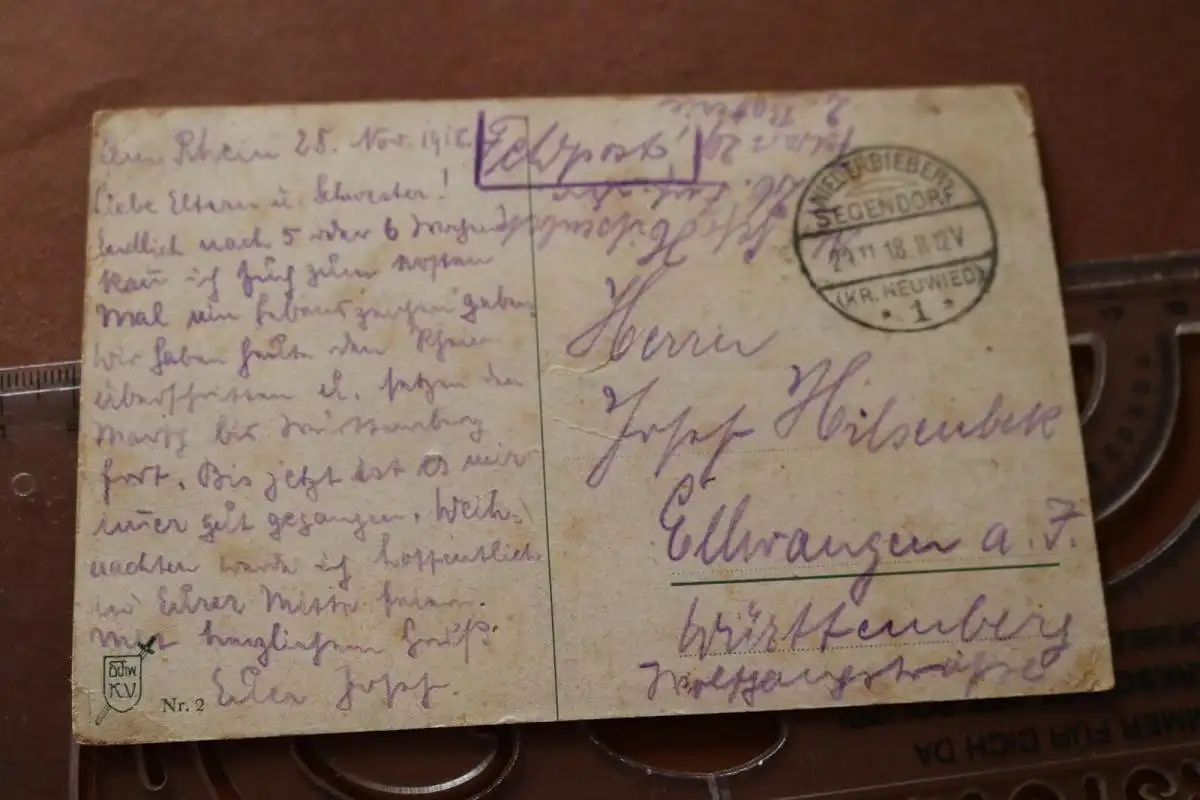 Am Rhein 28. Nov. 1918.
Liebe Eltern u. Schwester!
Endlich nach 5 oder 6 Wochen
kan ich Euch zum ersten
Mal ein Lebenszeichen geben.
Wir haben heute den Rhein
überschritten u. setzen den
Marsch bis Württemberg
fort. Bis jetzt ist es mir
imer gut gegangen. Weih-
nachten werde ich hoffentlich
in Eurer Mitte feiern.
Mit herzlichem Gruß
Euer Josef.
Nr. 2
Feldpost!
2. Batterie
NIEDERBIEBER-
SEGENDORF
29 11 18. 11-12V
(KR. NEUWIED)
* 1 *
Herrn
Josef Hilsenbek
Ellwangen a. J.
Württemberg
Wolfgangstraße
IMMER FÜR DICH DA